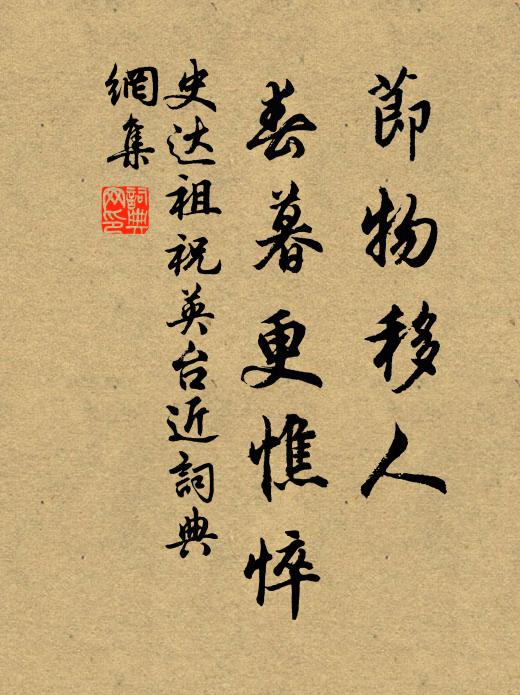 節物移人
春暮更憔悴
史达祖祝英台近詞典
網集
詞典
网印